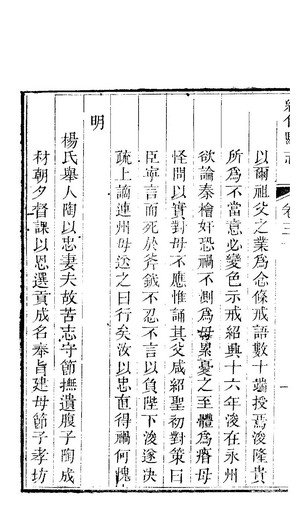 以爾祖父之業為念條戒語數十端授焉浚隆貴
所為不當意必變色示戒紹興十六年浚在永州
欲論秦檜奸恐禍不測為母累憂之至體為瘠母
怪問以實對母不應惟誦其父咸紹聖初對策曰
臣寧言而死於斧鉞不忍不言以負陛下浚遂决
疏上謫連州母送之曰行矣汝以忠直得禍何愧
明
楊氏舉人陶以忠妻夫故苦志守節撫遺腹子陶成
材朝夕督課以恩選貢成名奉旨建母節子孝坊